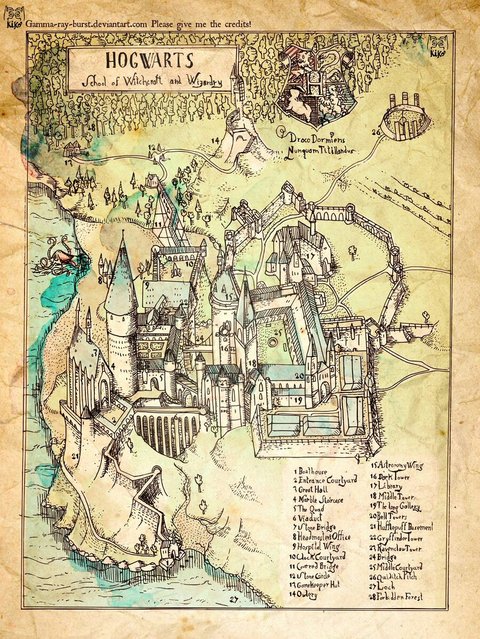 Gamma-ray-burst.deviantart.com Please give me the credits!
KiKé
KiKé
HOGWARTS
School of Witchcraft and Wizardry
Draco Dormiens
Nunquam Titillandus
1 Boathouse
2 Entrance Courtyard
3 Great Hall
4 Marble Staircase
5 The Quad
6 Viaduct
7 Stone Bridge
8 Headmasters Office
9 Hospital Wing
10 Clock Courtyard
11 Covered Bridge
12 Stone Circle
13 Gamekeeper Hut
14 Owlery
15 Astronomy Wing
16 Dark Tower
17 Library
18 Middle Tower
19 The long Gallery
20 Bell Towers
21 Hufflepuff Basement
22 Gryffindor Tower
23 Ravenclaw Tower
24 Bridge
25 Middle Courtyard
26 Quidditch Pitch
27 Loch
28 Forbidden Forest
14
26
12
10
17
9
15
18
20
19
21
27